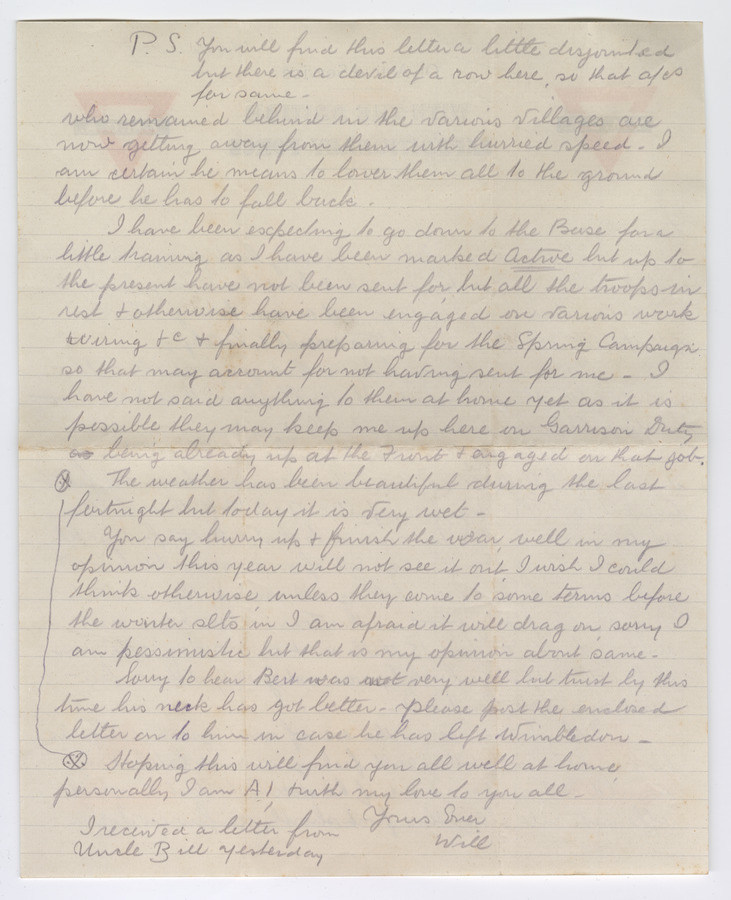 P.S. You will find this letter a little disjointed
but there is a devil of a row here, so that a/cs
for same -
who remained behind in the various villages are
now getting away from them with hurried speed - I
am certain he means to lower them all to the ground
before he has to fall back.
I have been expecting to go down to the Base for a
little training as I have been marked Active but up to
the present have not been sent for but all the troops in
rest & otherwise have been engaged on various work
wiring &c & finally preparing for the Spring Campaign
so that may account for not having sent for me - I
have not said anything to them at home yet as it is
possible they may keep me up here on Garrison Duty
as being already up at the Front & engaged on that job.
(X) The weather has been beautiful during the last
fortnight but today it is very wet -
You say hurry up & finish the war, well in my
opinion this year will not see it out, I wish I could
think otherwise, unless they come to some terms before
the winter sets in I am afraid it will drag on, sorry I
am pessimistic but that is my opinion about same -
Sorry to hear Bert was not very well but trust by this
time his neck has got better - please post the enclosed
letter on to him in case he has left Wimbledon -
(X) Hoping this will find you all well at home,
personally I am A1 & with my love to you all -
Yours Ever
Will
I received a letter from
Uncle Bill yesterday